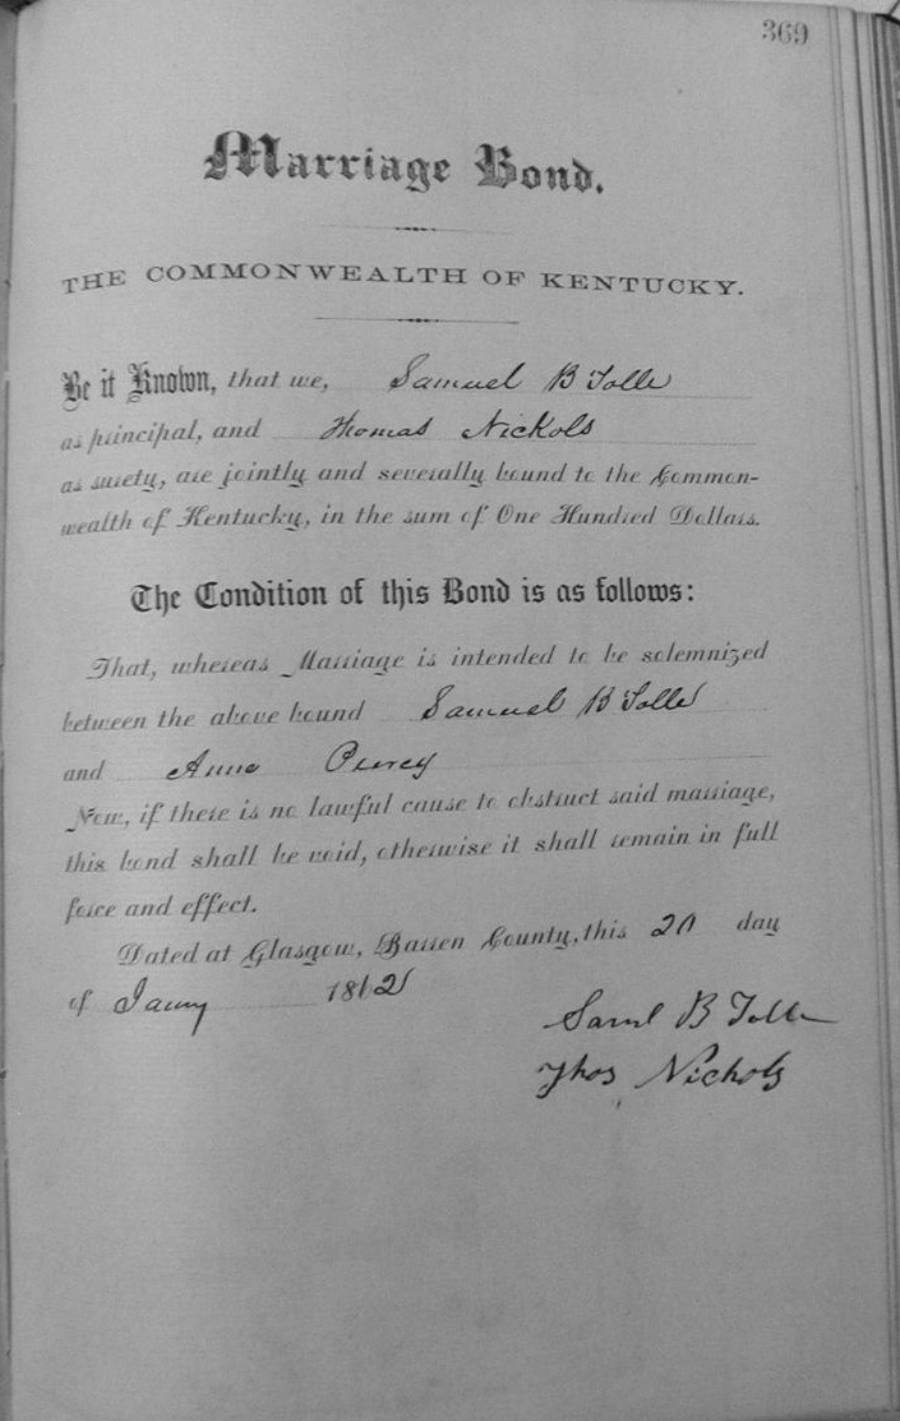 369
Marriage Bond.
THE COMMONWEALTH OF KENTUCKY.
Be it Known, that we, Samuel B Tolle
as principal, and Thomas Nickols
as surety, are jointly and severally bound to the Common-
wealth of Kentucky, in the sum of One Hundred Dollars.
The Condition of this Bond is as follows:
That, whereas Marriage is intended to be solemnized
between the above bound Samuel B Tolle
and Anna
Now, if there is no lawful cause to obstruct said marriage,
this bond shall be void, otherwise it shall remain in full
force and effect.
Dated at Glasgow, Barren County, this 20 day
of Jany 1862
Saml B Tolle
Thos Nichols